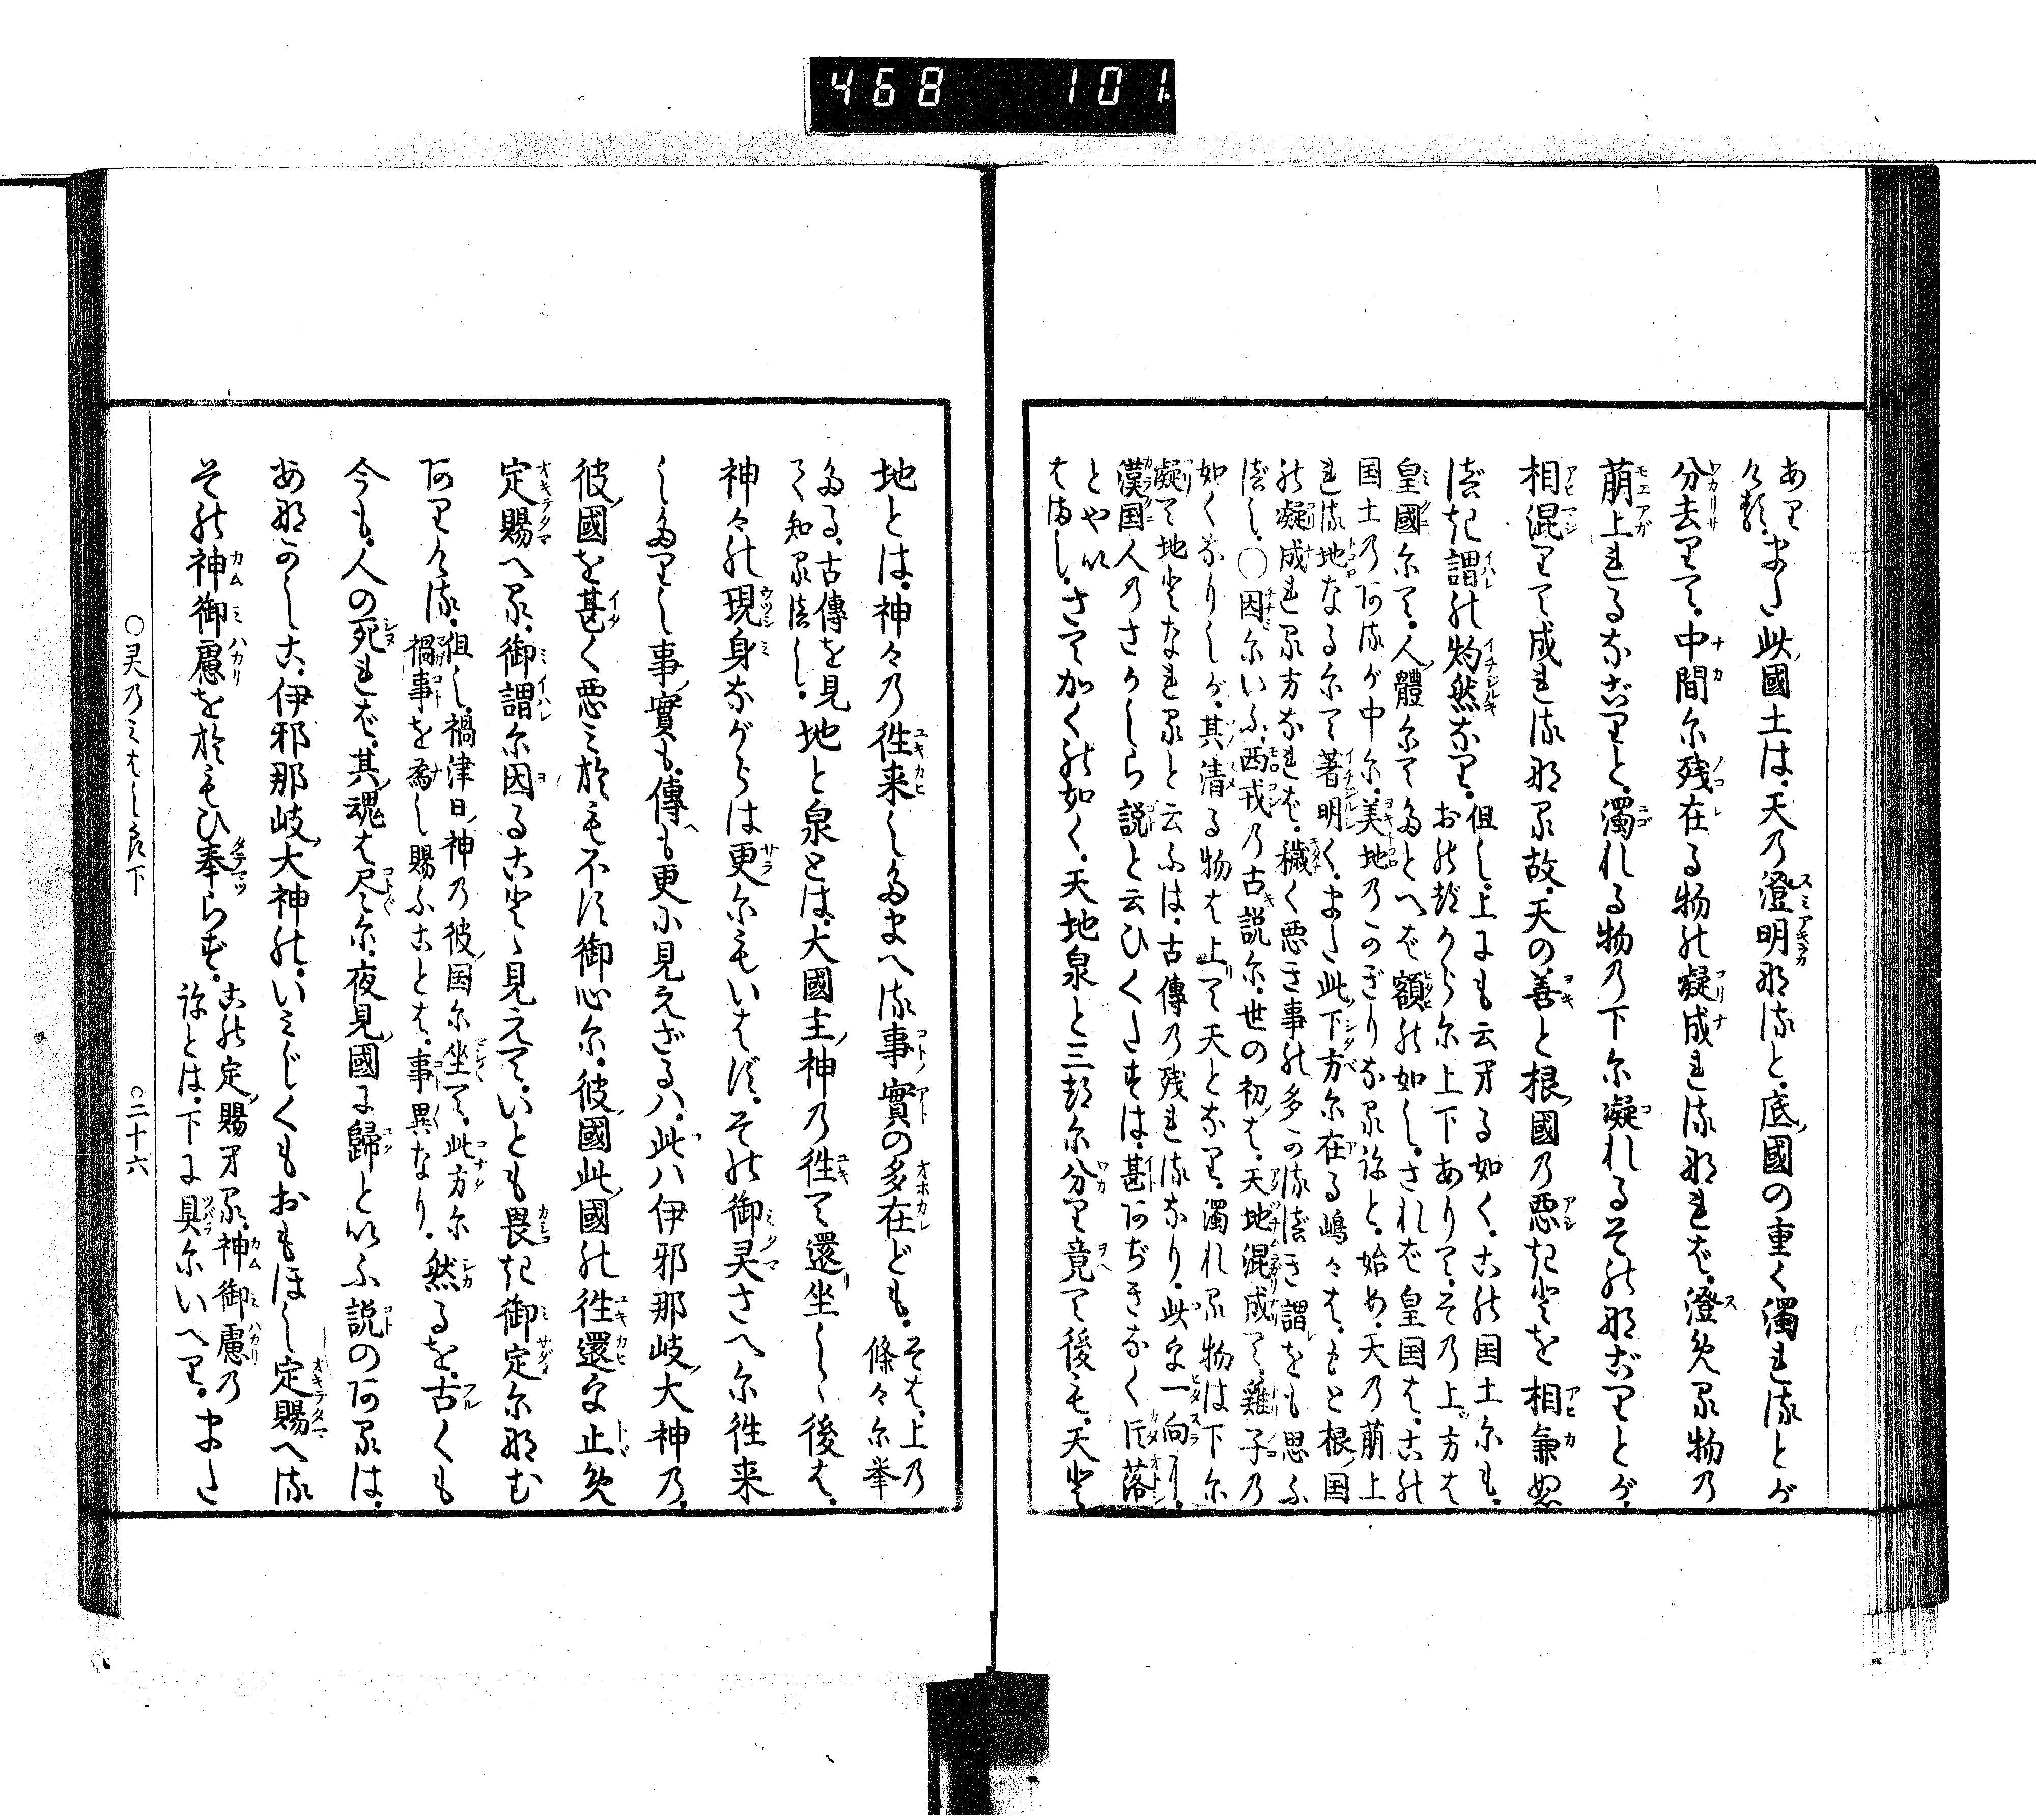 468 101
ありける。また此國土は。天乃澄明なると。底國の重く濁れるとが
分去りて。中間に残在る物の凝成れるなれば。澄める物乃
萠上れるなごりと。濁れる物乃下に凝れるその なごりとが。
相混りて成れるなる故。天の善と根國乃悪きとを相兼ぬ
べき謂の灼然なり。但し。上にも云へる如く。この国土にも。
おのづからに上下ありて。その乃上方は
皇國にて。人體にてたとへば額の如し。されば皇国は。この
国土乃あるが中に。美地乃かぎりなるべしと。始め。天乃萠上
れる地なるにて著明く。また此下方に在る嶋々は。もと根国
の凝成れる方なれば。穢く悪き事の多かるべき謂をも思ふ
べし。○因にいふ。西戎乃古説に。世の初は。天地混成て。雞子乃
如くなりしが。其清る物は上りて天となり。濁れる物は下に
凝て地となれると云ふは。古傳乃残れるなり。此を一向に。
漢国人乃さかしら説と云ひくたすは。甚あぢきなく片落
とやい
はまし。さてかくの如く。天地泉と三つに分り竟て後も。天と
地とは。神々乃往来したまへる事實の多在ども。そは。上乃
條々に挙
たる。古傳を見
て知るべし。地と泉とは。大國主神乃往て還坐しゝ後は。
神々の現身ながらは更にもいはず。その御霊さへに往来
したりし事實も。傳も更に見えざるハ。此ハ伊邪那岐大神乃。
彼國を甚く悪みおもほす御心に。彼國此國の往還を止め
定賜へる。御謂に因ることゝ見えて。いとも畏き御定になむ
ありける。但し。禍津日神乃彼国に坐て。此方に
禍事を為し賜ふことは。事異なり。然るを。古くも
今も。人の死れば。其魂は尽に。夜見國に歸といふ説のあるは。
あなかしこ。伊邪那岐大神の。いみじくもおもほし定賜へる
その神御慮をおもひ奉らず。この定賜へる。神御慮乃
ほとは。下に具にいへり。また
○霊乃みはしら下 ○二十六